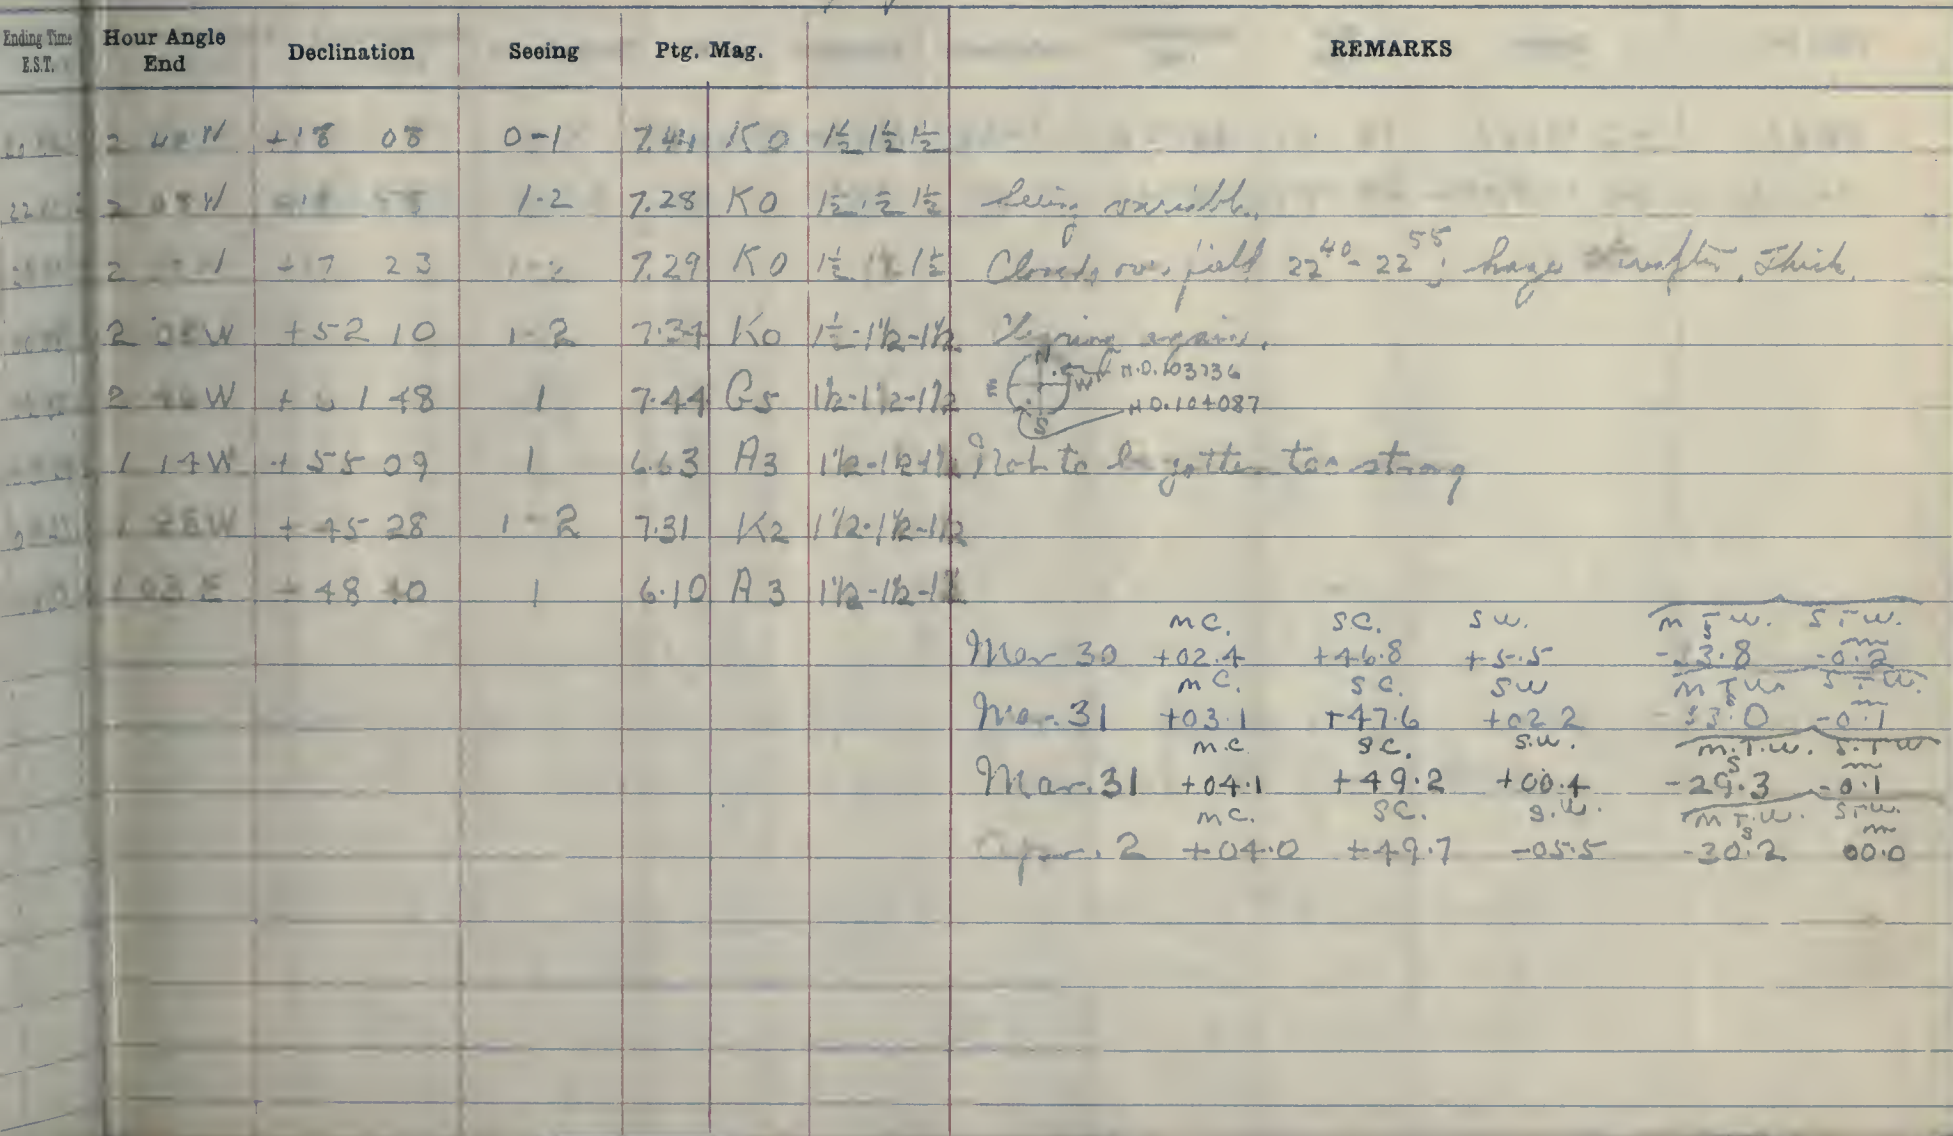 Ending Time E.S.T. Hour Angle End Declination Seeing Ptg. Mag. REMARKS
2 W +18 08 0-1 7.44 K0 1½ 1½ 1½
2 08 W 1-2 7.28 K0 1½ 1½ 1½ Seeing variable.
2 +17 23 1-2 7.29 K0 1½ 1½ 1½ Clouds over field 22⁴⁰-22⁵⁵; haze thereafter. Thick.
2 W +52 10 1-2 K0 1½-1½-1½ again.
N
H.D. 103736
E W
2 W 48 1 7.44 G5 1½-1½-1½
H.D. 104087
S
1 14W +55 09 1 6.63 A3 1½-1½-1½ Not to be gotten too strong
1 28W +45 28 1-2 7.31 K2 1½-1½-1½
1 03 E 48 1 6.10 A3 1½-1½-1½
M C. S C. S W. M T. W. S. T. W.
Mar 30 +02.4 +46.8 +5.5 -0.2
M C. S C. S W M T W S T W.
Mar. 31 +03.1 +47.6 +02 2 -33.0 -0.1
M.C S C. S.W. M.T.W. S.T W
Mar. 31 +04.1 +49.2 +00.4 -29.3 -0.1
M C. S C. S.W. M T.W. S.T.W.
Apr. 2 +04.0 +49.7 -05.5 -30.2 00.0